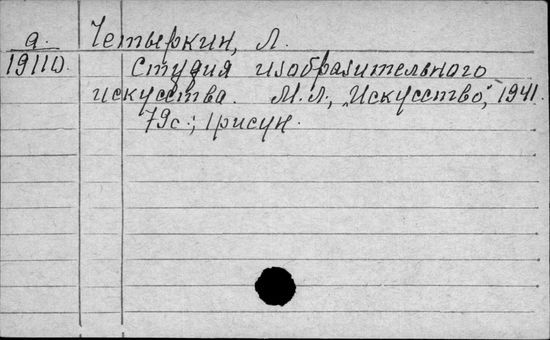 а. Четыркин, Л.
19110. Студия изобразительного
искусства. М.Л., „Искусство“, 1941.
79с.; 1рисун.